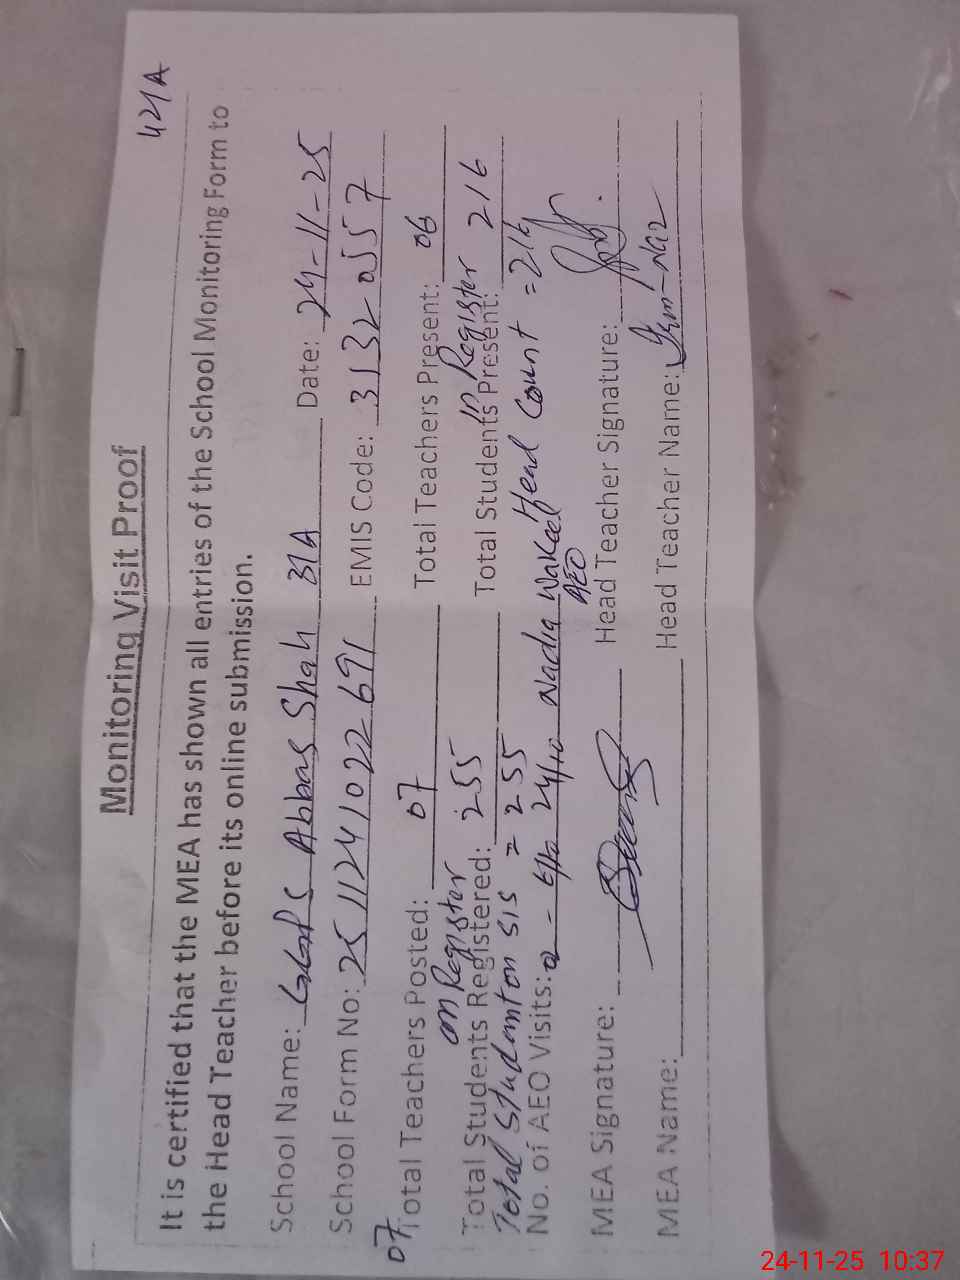 421A
Monitoring Visit Proof
It is certified that the MEA has shown all entries of the School Monitoring Form to
the Head Teacher before its online submission.
School Name: GGPS Abbas Shah 31A Date: 24-11-25
School Form No: 2511241022691 EMIS Code: 31320557
07
Total Teachers Posted: 07 Total Teachers Present: 06
on Register in Register
Total Students Registered: 255 Total Students Present: 216
Total Student on SIS = 255 Head Count = 216
No. of AEO Visits: 2 - 24/10 Nadia Wakeel
AEO
MEA Signature: Head Teacher Signature:
MEA Name: Head Teacher Name:
24-11-25 10:37